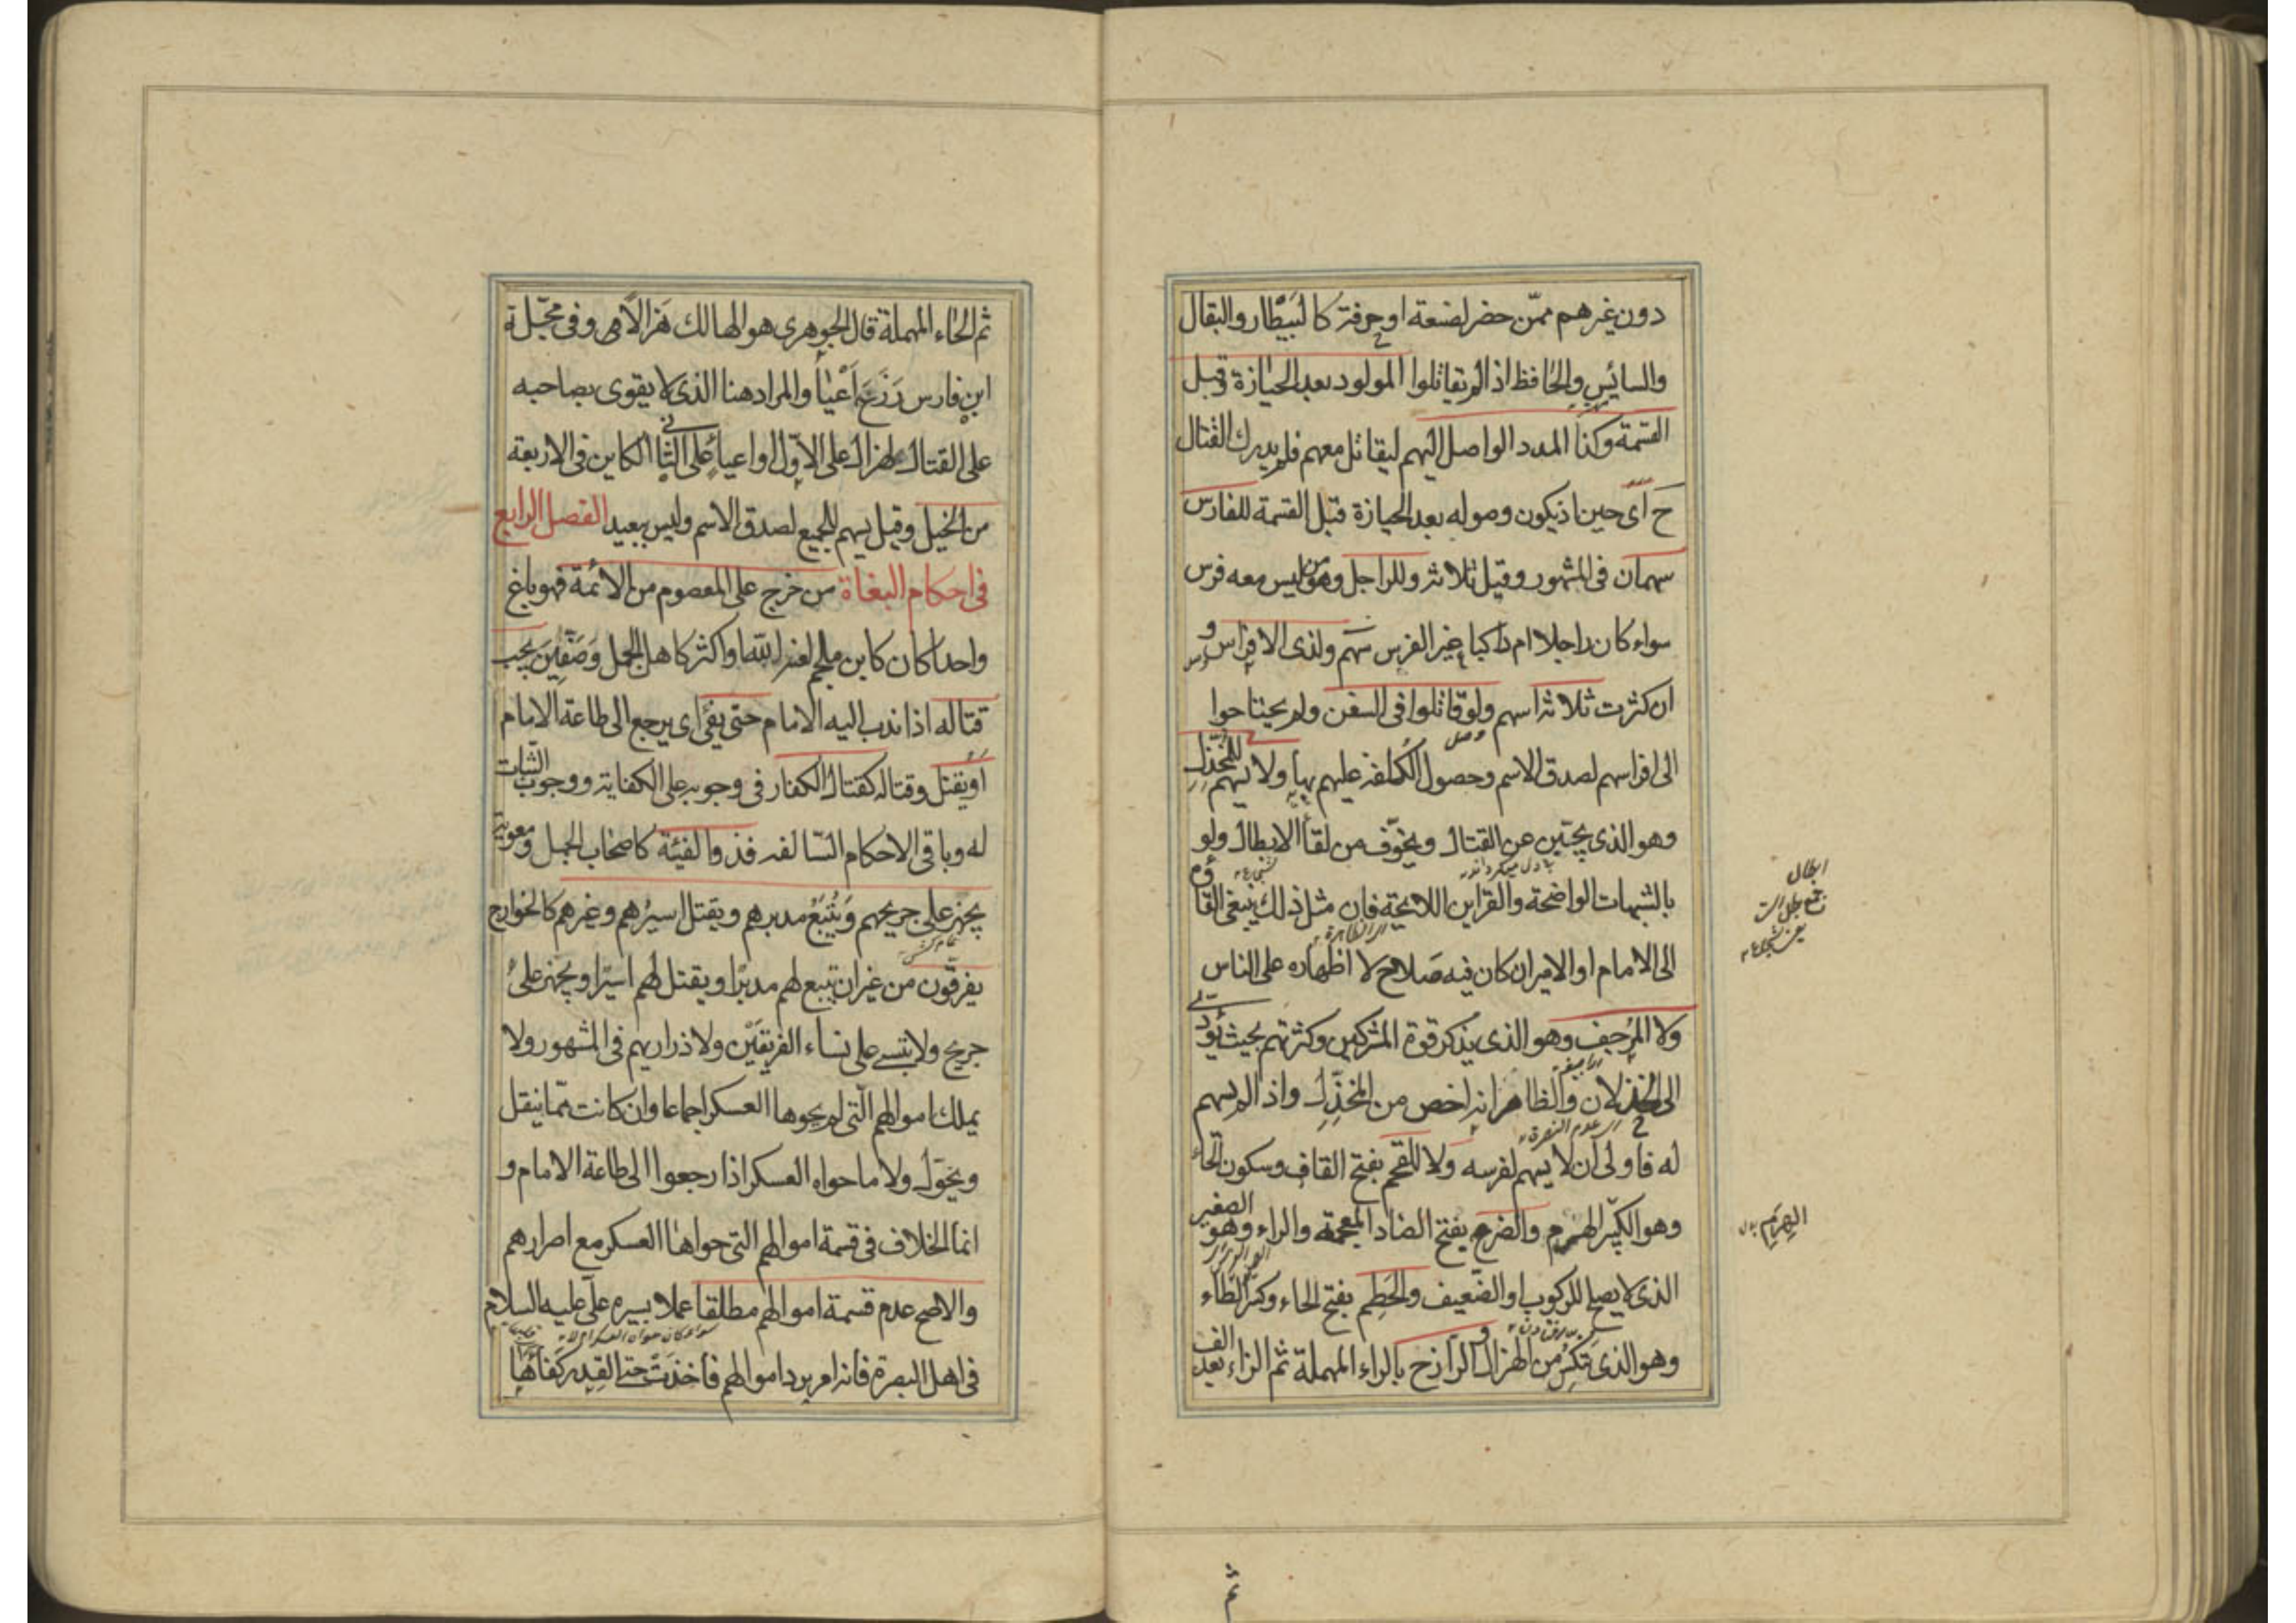 دون غيرهم ممّن حضر لصنعة او حرفة كالبَيْطار والبقال
والسائس والحافظ اذا لم يقاتلوا المولود بعد الحيازة وقبل
القسمة وكذا المدد الواصل اليهم ليقاتل معهم فلم يدرك القتال
ح اى حين اذ يكون وصوله بعد الحيازة قبل القسمة للفارس
سهمان فى المشهور وقيل ثلاثة وللراجل وهو من ليس معه فرس
سواء كان راجلا ام راكبا غير الفرس سهم ولذى الافراس و
ان كثرت ثلاثة اسهم ولو قاتلوا فى السفن ولم يحتاجوا
الى افراسهم لصدق الاسم وحصول الكلفة عليهم بها ولا يسهم للمُخَذِّل
وهو الذى يجبّن عن القتال ويخوّف من لقاء الابطال ولو
بالشبهات الواضحة والقراين اللايحة فان مثل ذلك ينبغى القاؤه
الى الامام او الامير ان كان فيه صلاح لا اظهاره على الناس
ولا المُرْجِف وهو الذى يذكر قوة المشركين وكثرتهم بحيث يؤدى
الى الخذلان والظاهر انه اخص من المُخَذِّل واذا لم يسهم
له فاولى ان لا يسهم لفرسه ولا للقحم بفتح القاف وسكون الحاء
وهو الكبير الهرم والضرع بفتح الضاد المعجمة والراء وهو الصغير
الذى لا يصلح للركوب او الضّعيف والحَطِم بفتح الحاء وكسر الطاء
وهو الذى تكسّر من الهزال والرّازح بالراء المهملة ثم الزاء بعد الف
ابطال
جمع بطل است
يعنى شجاع
الهرم
ثم الحاء المهملة قال الجوهرى هو الهالك هزالا وفى مجمل
ابن فارس رَزَحَ اَعْيَا والمراد هنا الذى لا يقوى بصاحبه
على القتال لهزال على الاوّل او اعياء على الثانى الكاين فى الاربعة
من الخيل وقيل يسهم للجميع لصدق الاسم وليس ببعيد الفصل الرابع
فى احكام البغاة من خرج على المعصوم من الائمة فهو باغ
واحدا كان كابن ملجم لعنه الله او اكثر كاهل الجمل وصَفّين يجب
قتاله اذا ندب اليه الامام حتى يفئ اى يرجع الى طاعة الامام
او يقتل وقتاله كقتال الكفار فى وجوبه على الكفاية ووجوب الثبات
له وباقى الاحكام السّالفه فذوا لفئة كاصحاب الجمل ومعوية
يجهز على جريحهم ويُتْبَعُ مدبرهم ويقتل اسيرهم وغيرهم كالخوارج
يفرقون من غير ان يتبع لهم مدبرا ويقتل لهم اسيرا ويجهز على
جريح ولا تسبى نساء الفريقين ولا ذراريهم فى المشهور ولا
يملك اموالهم الّتى لم يحوها العسكر اجماعا وان كانت ممّا ينقل
ويحوّل ولا ما حواه العسكر اذا رجعوا الى طاعة الامام و
انما الخلاف فى قسمة اموالهم التى حواها العسكر مع اصرارهم
والاصح عدم قسمة اموالهم مطلقا عملا بسيرة على عليه السلام
فى اهل البصرة فانه امر برد اموالهم فاخذت حتى القِدر كفأها